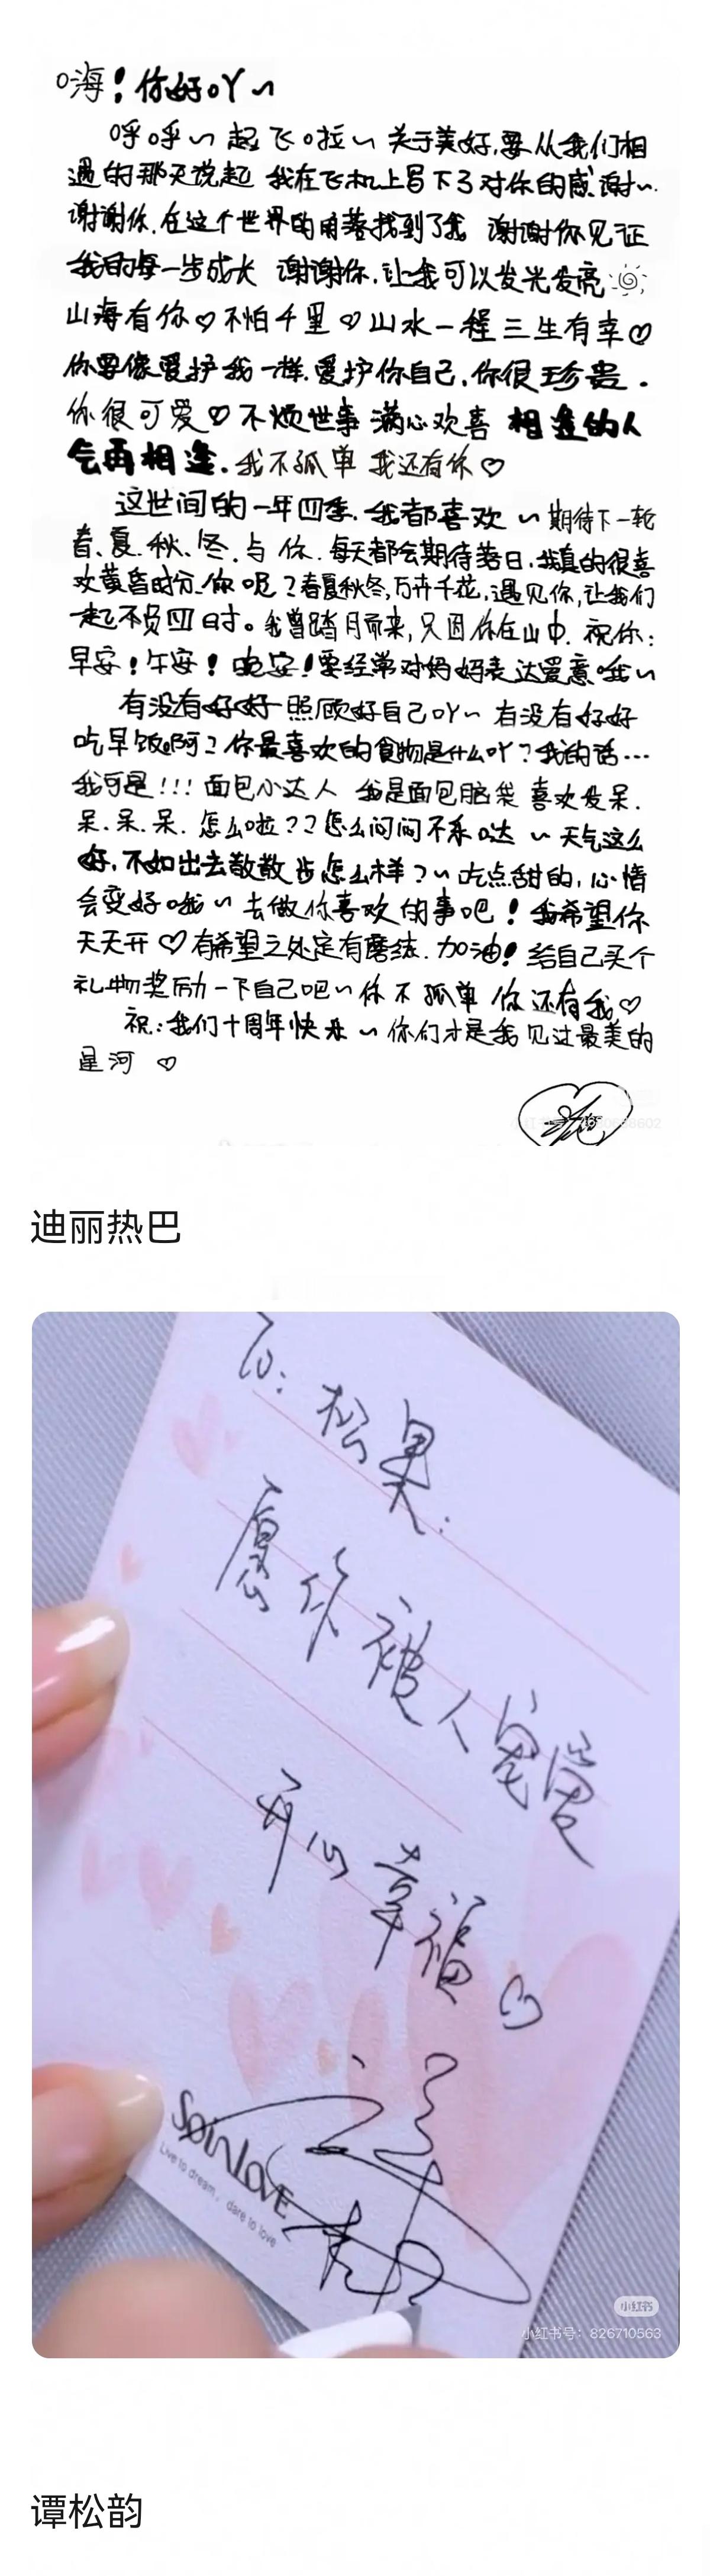 嗨！你好吖～
呼呼～起飞啦～关于美好,要从我们相
遇的那天说起 我在飞机上写下了对你的感谢～
谢谢你.在这个世界的角落找到了我 谢谢你见证
我的每一步成长 谢谢你.让我可以发光发亮
山海有你♡不怕千里♡山水一程三生有幸♡
你要像爱护我一样.爱护你自己.你很珍贵.
你很可爱♡不烦世事 满心欢喜 相逢的人
会再相逢.我不孤单 我还有你♡
这世间的一年四季.我都喜欢～期待下一轮
春、夏.秋、冬.与你.每天都会期待落日.我真的很喜
欢黄昏时分.你呢？春夏秋冬,万卉千花,遇见你,让我们
一起不负四时。我曾踏月而来,只因你在山中.祝你：
早安！午安！晚安！要经常对妈妈表达爱意哦～
有没有好好照顾好自己吖～有没有好好
吃早饭啊？你最喜欢的食物是什么吖？我的话…
我可是！！！面包小达人 我是面包脑袋 喜欢发呆.
呆.呆.呆.怎么啦？？怎么闷闷不乐哒～天气这么
好.不如出去散散步怎么样？～吃点甜的,心情
会变好哦～去做你喜欢的事吧！我希望你
天天开♡有希望之处定有磨练.加油！给自己买个
礼物奖励一下自己吧～你不孤单 你还有我♡
祝：我们十周年快乐～你们才是我见过最美的
星河♡
迪丽热巴
To:松果：
愿你被人宠爱
开心幸福♡
SpinLOVE
Live to dream, dare to love
小红书
小红书号：826710563
谭松韵